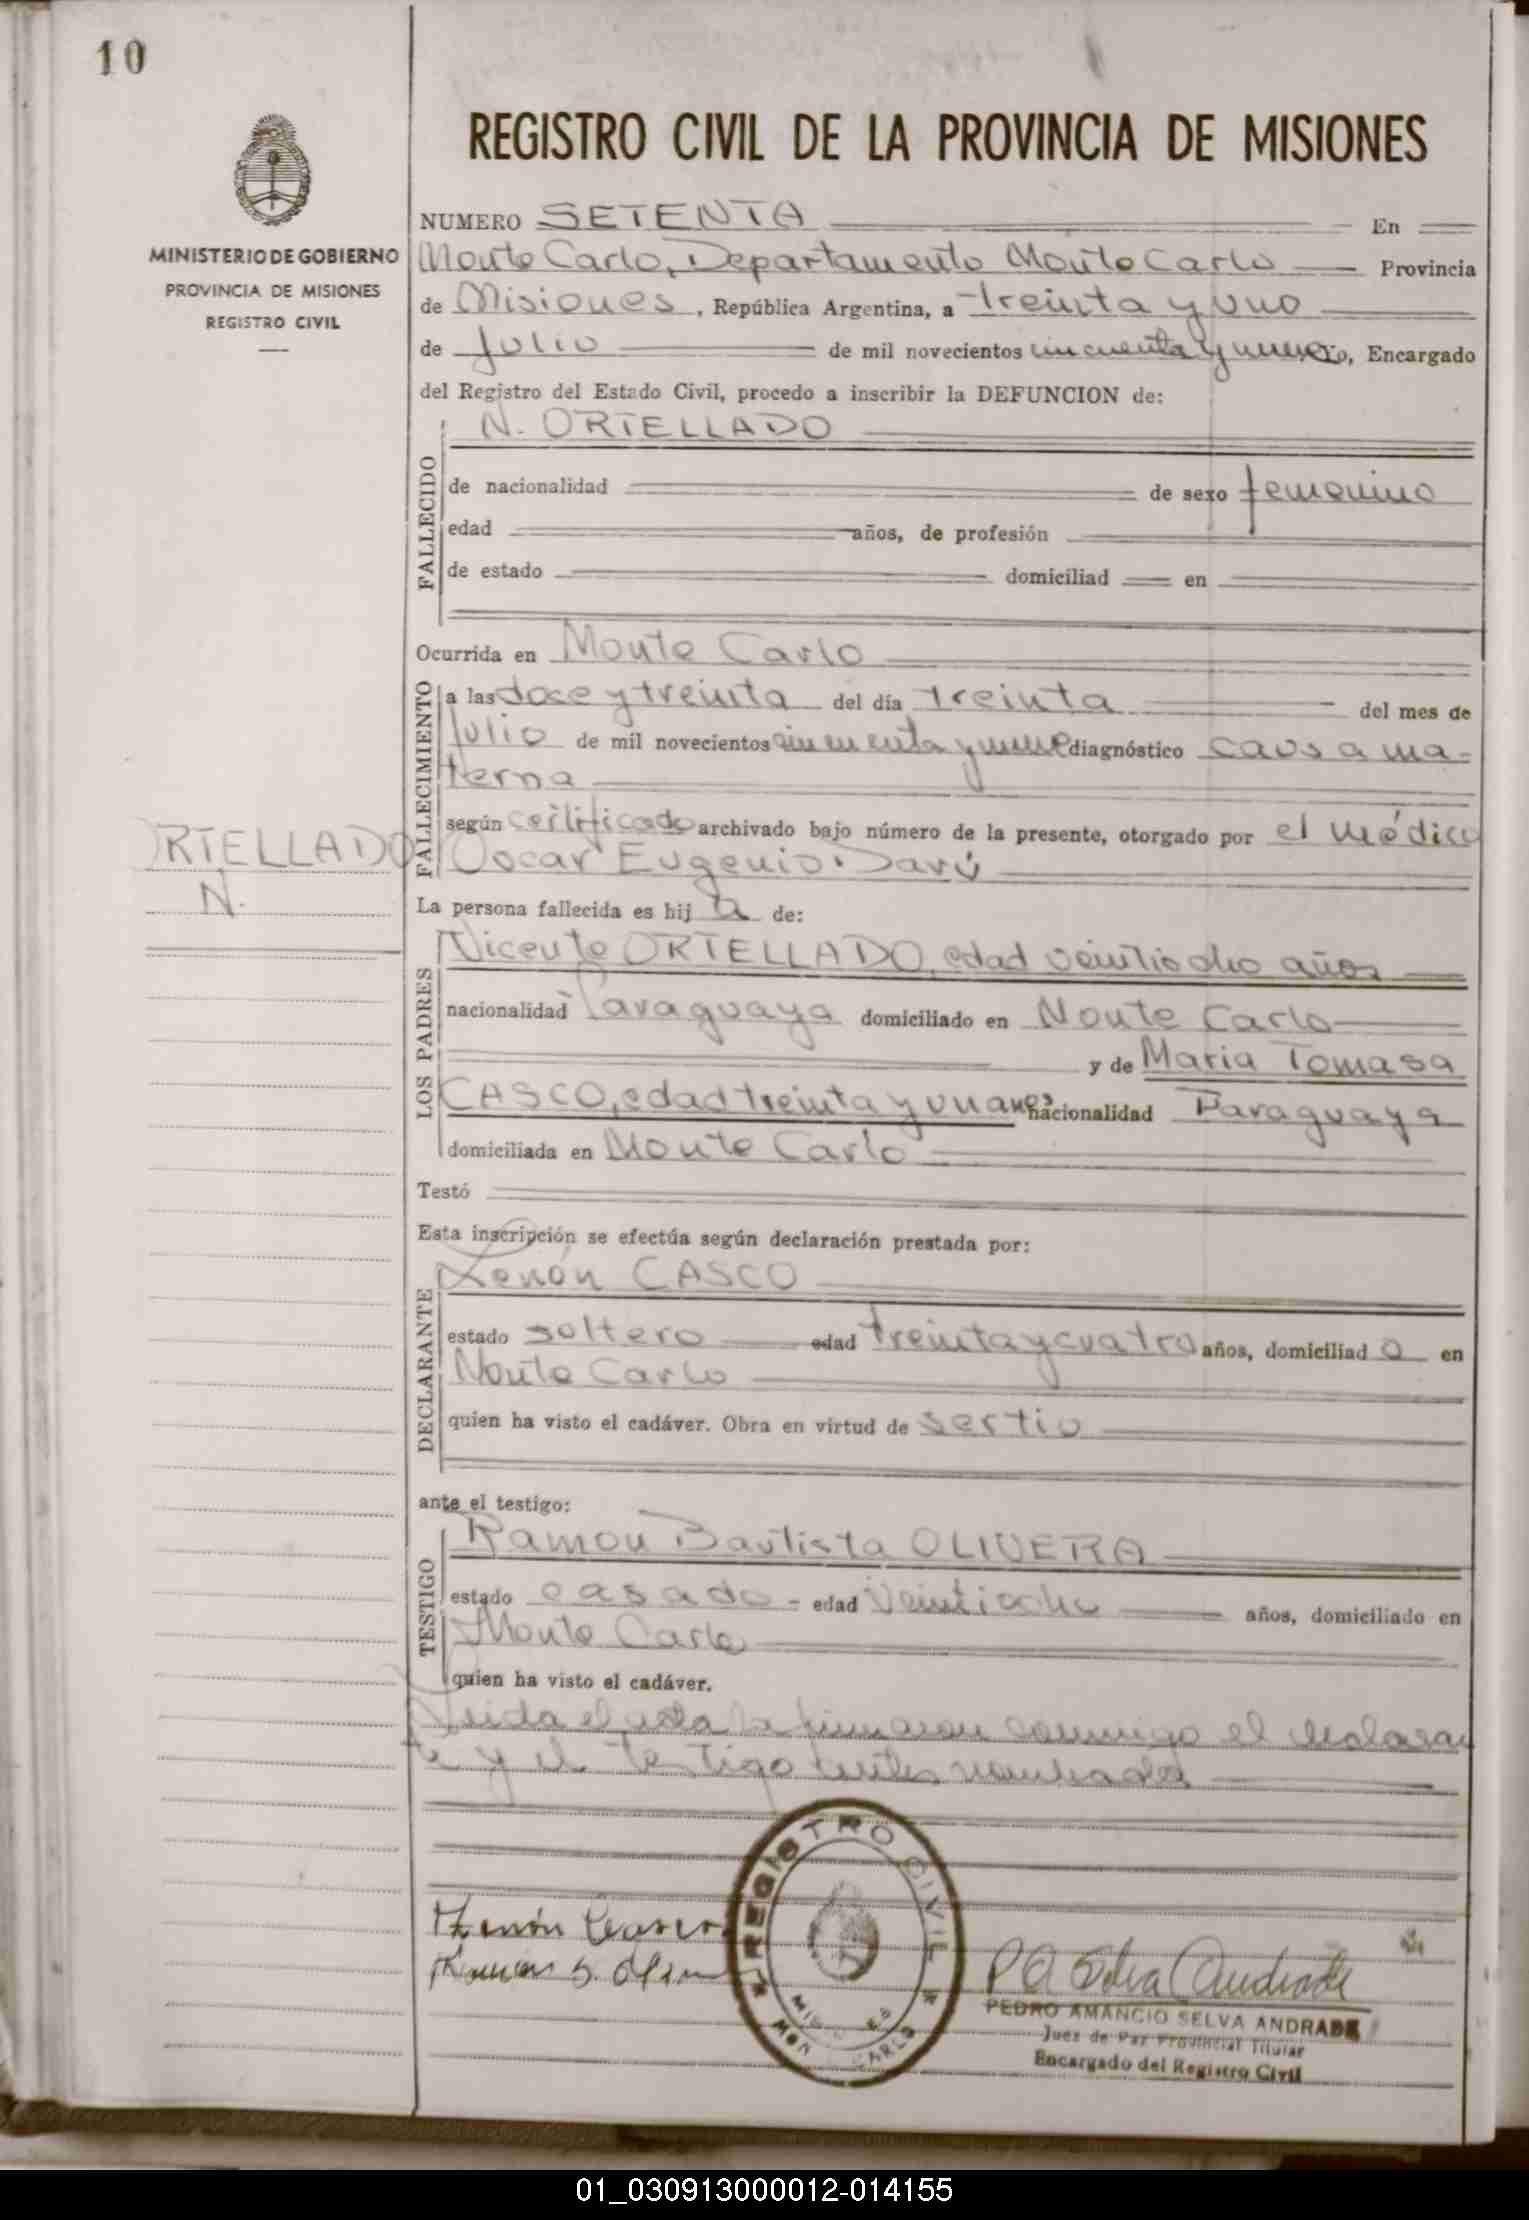 10
REGISTRO CIVIL DE LA PROVINCIA DE MISIONES
MINISTERIO DE GOBIERNO
PROVINCIA DE MISIONES
REGISTRO CIVIL
NUMERO SETENTA En
Monte Carlo, Departamento Monte Carlo Provincia
de Misiones, República Argentina, a treinta y uno
de Julio de mil novecientos cincuenta y nueve, Encargado
del Registro del Estado Civil, procedo a inscribir la DEFUNCION de:
N. ORTELLADO
FALLECIDO
de nacionalidad de sexo femenino
edad años, de profesión
de estado domiciliad en
Ocurrida en Monte Carlo
FALLECIMIENTO
a las doce y treinta del día treinta del mes de
Julio de mil novecientos cincuenta y nueve diagnóstico causa ma-
terna
según certificado archivado bajo número de la presente, otorgado por el médico
Oscar Eugenio Darú
ORTELLADO
N.
La persona fallecida es hij a de:
LOS PADRES
Vicente ORTELLADO, edad veintiocho años
nacionalidad Paraguaya domiciliado en Monte Carlo
y de Maria Tomasa
CASCO, edad treinta y un años nacionalidad Paraguaya
domiciliada en Monte Carlo
Testó
Esta inscripción se efectúa según declaración prestada por:
DECLARANTE
Zenón CASCO
estado soltero edad treinta y cuatro años, domiciliad o en
Monte Carlo
quien ha visto el cadáver. Obra en virtud de ser tio
ante el testigo:
TESTIGO
Ramon Bautista OLIVERA
estado casado - edad veintiocho años, domiciliado en
Monte Carlo
quien ha visto el cadáver.
Leida el acta la firmaron conmigo el declaran
te y el testigo antes nombrados
Zenón Casco
Ramon B.
REGISTRO CIVIL
MISIONES
MONTE CARLO
P A Selva Andrade
PEDRO AMANCIO SELVA ANDRADE
Juez de Paz Provincial Titular
Encargado del Registro Civil
01_030913000012-014155